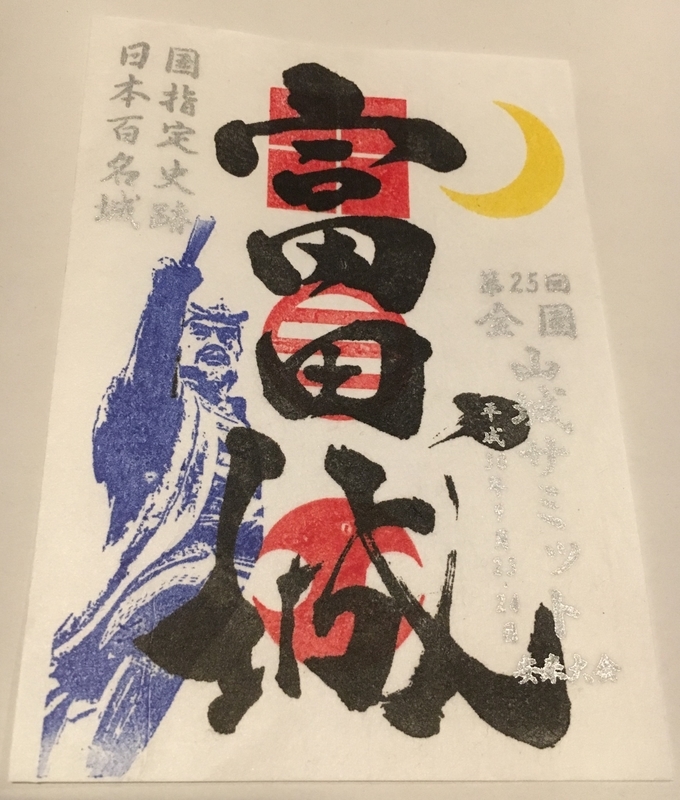 第25回
全国
山城サミット
安来大会
平成
富田城
国指定史跡
日本百名城